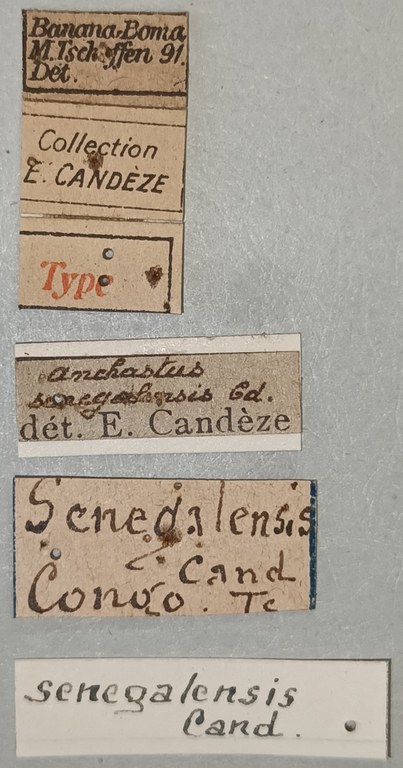 Banana-Boma
M. Tschoffen 91.
Dét.
Collection
E. CANDÈZE
Type
Anchastus
senegalensis Cd.
dét. E. Candèze
Senegalensis
Cand
Congo. Te
senegalensis
Cand.